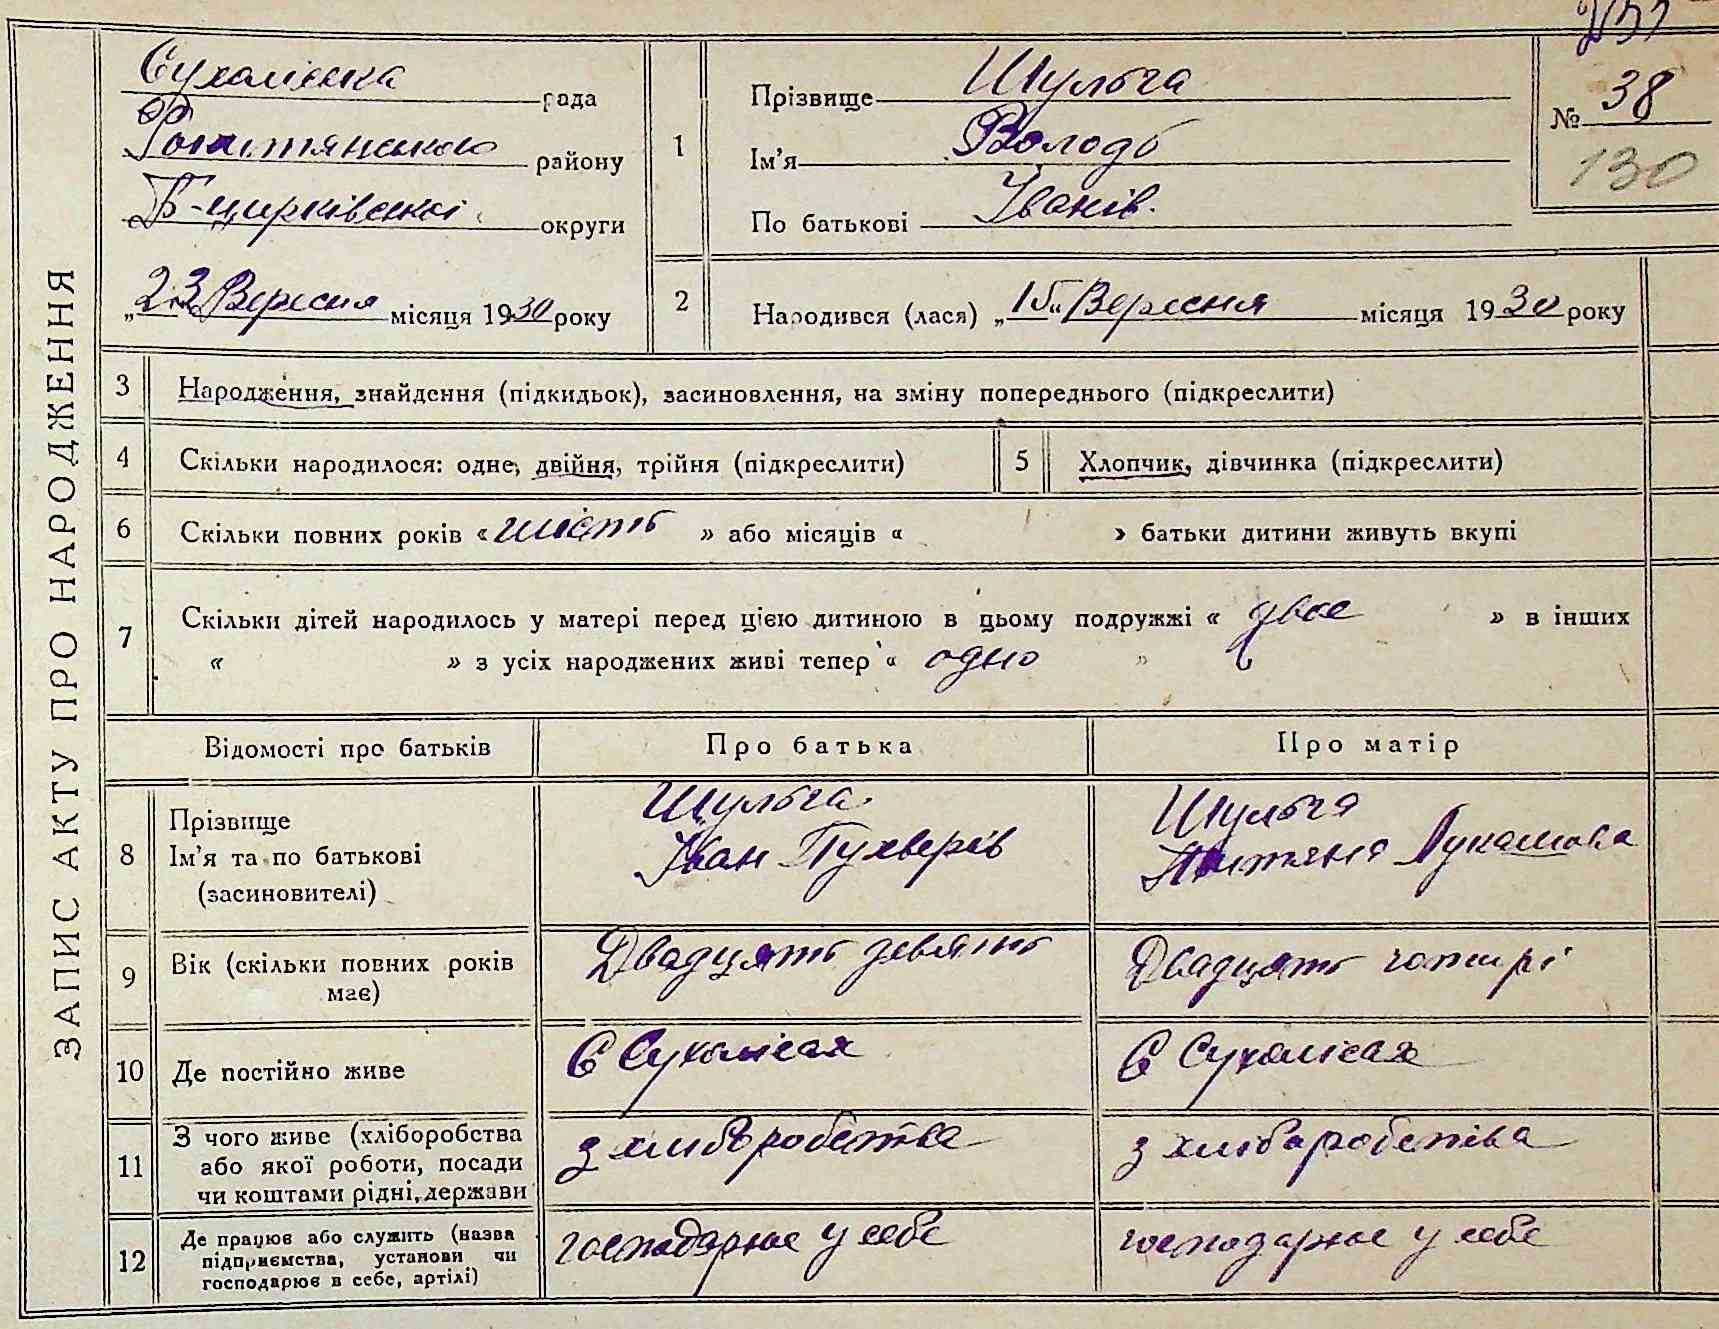 ЗАПИС АКТУ ПРО НАРОДЖЕННЯ
Сухоліська рада
Рокитянського району
Б-Церківської округи
„23" Вересня місяця 1930 року
1
Прізвище Шульга
Ім'я Володь
По батькові Іванів.
№ 38
130
2
Народився (лася) „15" Вересня місяця 1930 року
3 Народження, знайдення (підкидьок), засиновлення, на зміну попереднього (підкреслити)
4 Скільки народилося: одне, двійня, трійня (підкреслити)
5 Хлопчик, дівчинка (підкреслити)
6 Скільки повних років « шість » або місяців « » батьки дитини живуть вкупі
7 Скільки дітей народилось у матері перед цією дитиною в цьому подружжі « двоє » в інших
« » з усіх народжених живі тепер « одно »
Відомості про батьків Про батька Про матір
8 Прізвище
Ім'я та по батькові
(засиновителі)
Шульга
Іван Пухверів
Шульга
Титяна Лукашова
9 Вік (скільки повних років
має)
Двадцять девять
Двадцять чотирі
10 Де постійно живе
в Сухолісах
в Сухолісах
11 З чого живе (хліборобства
або якої роботи, посади
чи коштами рідні, держави
з хліборобства
з хліборобства
12 Де працює або служить (назва
підприємства, установи чи
господарює в себе, артілі)
господарює у себе
господарює у себе